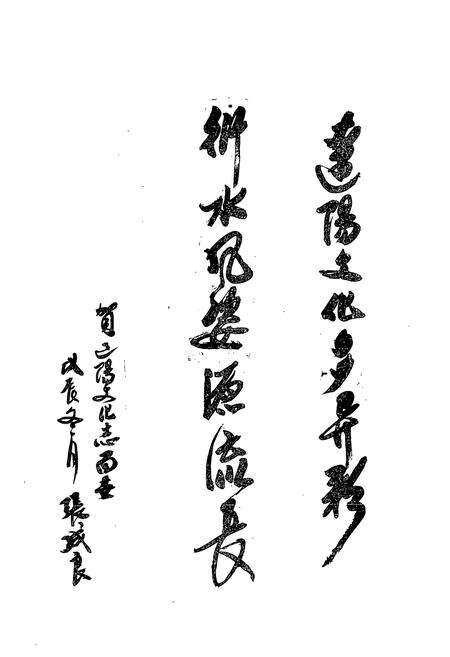 遼陽文化多异彩
衍水风姿源流長
賀辽陽文化志面世
戊辰冬月 張成良